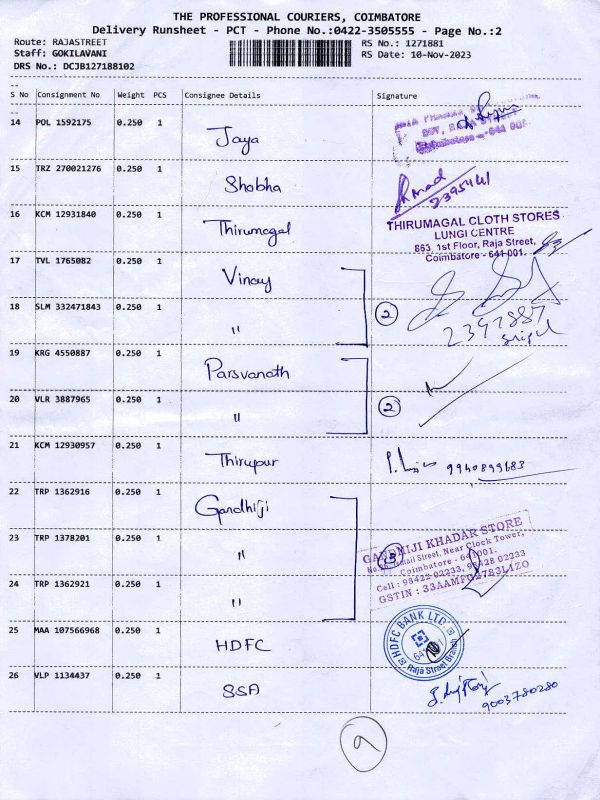 THE PROFESSIONAL COURIERS, COIMBATORE
Delivery Runsheet - PCT - Phone No.:0422-3505555 - Page No.:2
Route: RAJASTREET
Staff: GOKILAVANI
DRS No.: DCJB127188102
RS No.: 1271881
RS Date: 10-Nov-2023
--
S No Consignment No Weight PCS Consignee Details Signature
--
14 POL 1592175 0.250 1 Jaya
15 TRZ 270021276 0.250 1 Shobha 2395441
16 KCM 12931840 0.250 1 Thirumagal
THIRUMAGAL CLOTH STORES
LUNGI CENTRE
863, 1st Floor, Raja Street,
Coimbatore - 641 001.
17 TVL 1765082 0.250 1 Vinay
18 SLM 332471843 0.250 1 " 2 2392887
19 KRG 4550887 0.250 1 Parsvanath
20 VLR 3887965 0.250 1 " 2
21 KCM 12930957 0.250 1 Thirupur 9940899683
22 TRP 1362916 0.250 1 Gandhiji
23 TRP 1378201 0.250 1 " 3
GANDHIJI KHADAR STORE
Ismail Street, Near Clock Tower,
Coimbatore - 641001.
Cell : 98422 02233, 98428 02233
GSTIN : 33AAMFG2783L1ZO
24 TRP 1362921 0.250 1 "
25 MAA 107566968 0.250 1 HDFC
HDFC BANK LTD.
Raja Street Branch
26 VLP 1134437 0.250 1 SSA 9003780280
9